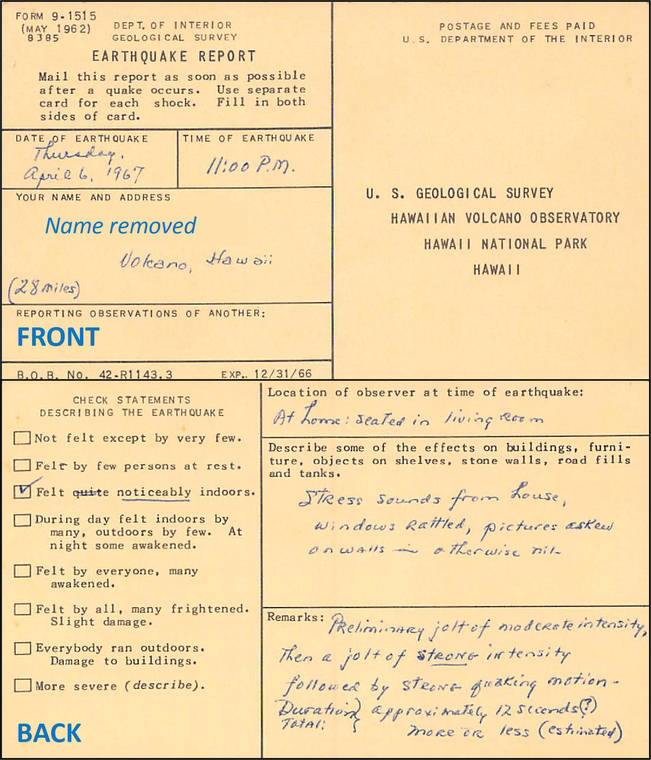 FORM 9-1515
(MAY 1962)
8385
DEPT. OF INTERIOR
GEOLOGICAL SURVEY
EARTHQUAKE REPORT
Mail this report as soon as possible
after a quake occurs. Use separate
card for each shock. Fill in both
sides of card.
DATE OF EARTHQUAKE
Thursday,
April 6, 1967
TIME OF EARTHQUAKE
11:00 P.M.
YOUR NAME AND ADDRESS
Name removed
Volcano, Hawaii
(28 miles)
REPORTING OBSERVATIONS OF ANOTHER:
FRONT
B.O.B. No. 42-R1143.3 EXP. 12/31/66
POSTAGE AND FEES PAID
U.S. DEPARTMENT OF THE INTERIOR
U. S. GEOLOGICAL SURVEY
HAWAIIAN VOLCANO OBSERVATORY
HAWAII NATIONAL PARK
HAWAII
CHECK STATEMENTS
DESCRIBING THE EARTHQUAKE
Not felt except by very few.
Felt by few persons at rest.
Felt quite noticeably indoors.
During day felt indoors by
many, outdoors by few. At
night some awakened.
Felt by everyone, many
awakened.
Felt by all, many frightened.
Slight damage.
Everybody ran outdoors.
Damage to buildings.
More severe (describe).
BACK
Location of observer at time of earthquake:
At home: seated in living room
Describe some of the effects on buildings, furni-
ture, objects on shelves, stone walls, road fills
and tanks.
Stress sounds from house,
windows rattled, pictures askew
on walls — otherwise nil-
Remarks: Preliminary jolt of moderate intensity,
Then a jolt of STRONG intensity
followed by strong quaking motion-
Duration } approximately 12 seconds(?)
Total: } more or less (estimated)